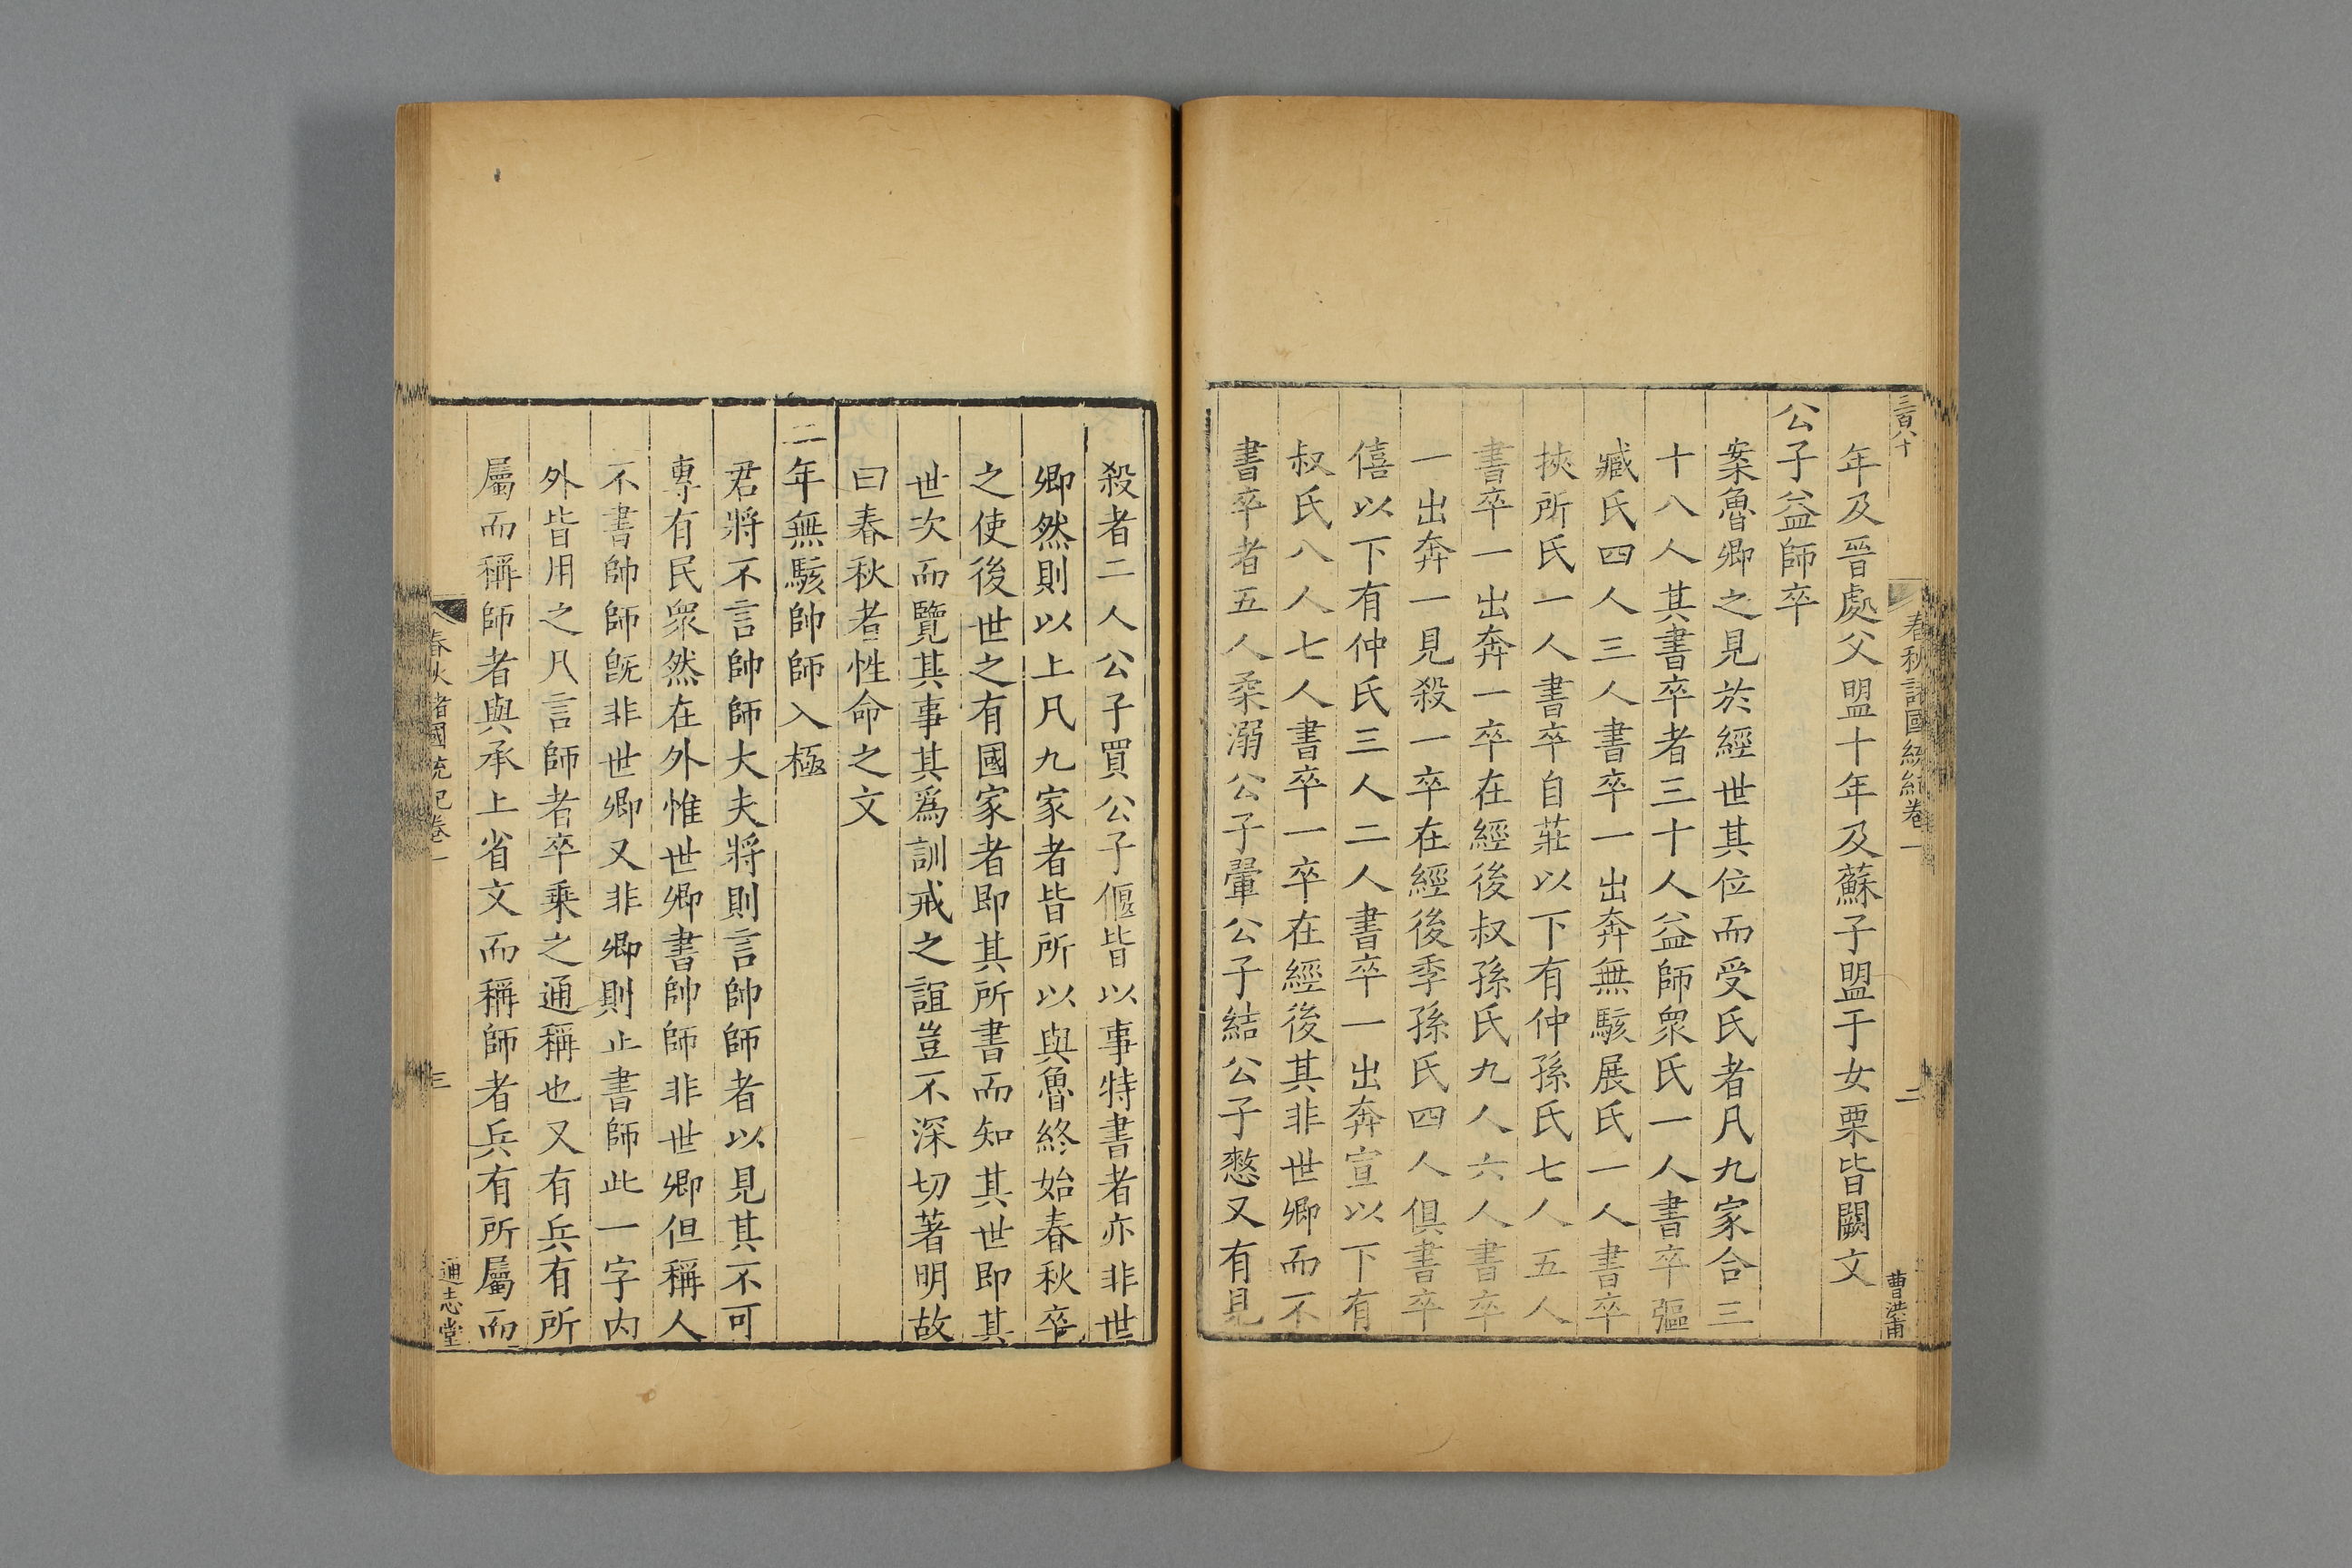 三百八十
春秋諸國統紀卷一
二
曹洪甫
年及晉處父盟十年及蘇子盟于女栗皆闕文
公子益師卒
案魯卿之見於經世其位而受氏者凡九家合三
十八人其書卒者三十人益師眾氏一人書卒彄
臧氏四人三人書卒一出奔無駭展氏一人書卒
挾所氏一人書卒自莊以下有仲孫氏七人五人
書卒一出奔一卒在經後叔孫氏九人六人書卒
一出奔一見殺一卒在經後季孫氏四人俱書卒
僖以下有仲氏三人二人書卒一出奔宣以下有
叔氏八人七人書卒一卒在經後其非世卿而不
書卒者五人柔溺公子翬公子結公子憖又有見
殺者二人公子買公子偃皆以事特書者亦非世
卿然則以上凡九家者皆所以與魯終始春秋卒
之使後世之有國家者即其所書而知其世即其
世次而覽其事其爲訓戒之誼豈不深切著明故
曰春秋者性命之文
二年無駭帥師入極
君將不言帥師大夫將則言帥師者以見其不可
專有民眾然在外惟世卿書帥師非世卿但稱人
不書帥師旣非世卿又非卿則止書師此一字內
外皆用之凡言師者卒乗之通稱也又有兵有所
屬而稱師者與承上省文而稱師者兵有所屬而
春秋諸國統紀卷一
三
通志堂